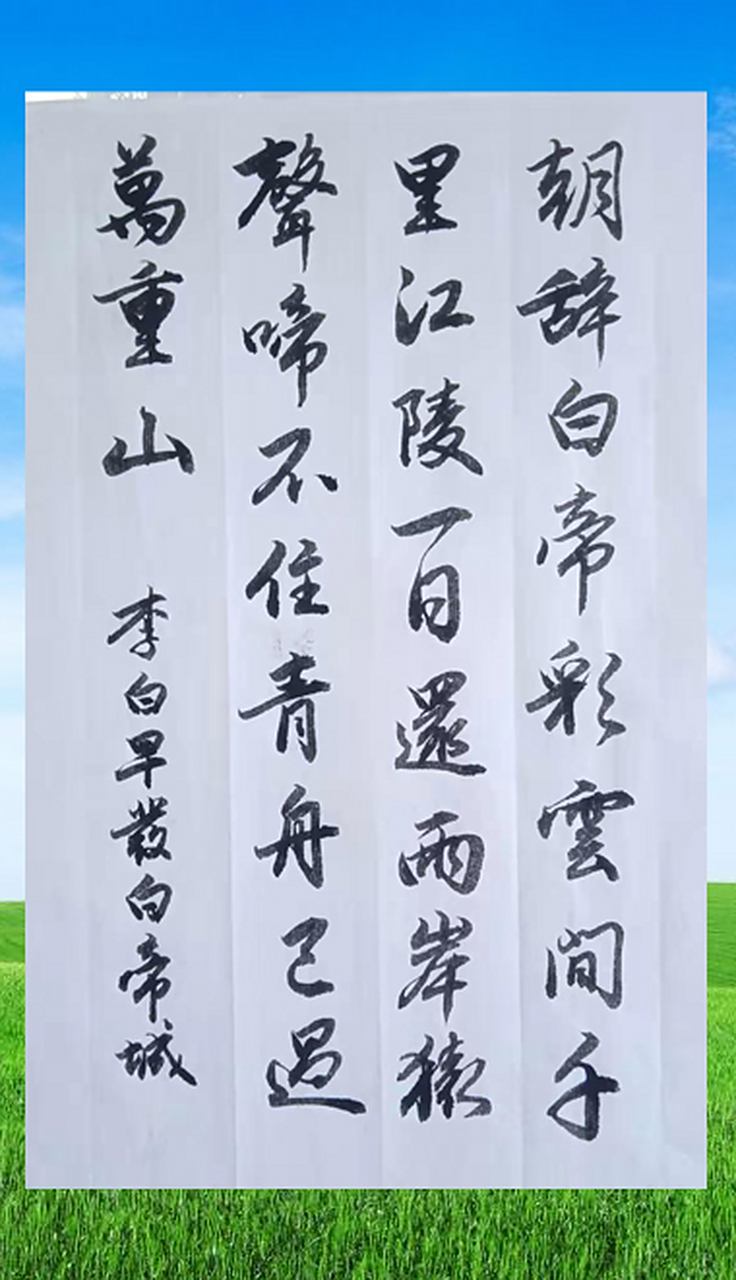 朝辞白帝彩雲間千
里江陵一日還兩岸猿
聲啼不住青舟已過
萬重山 李白早發白帝城